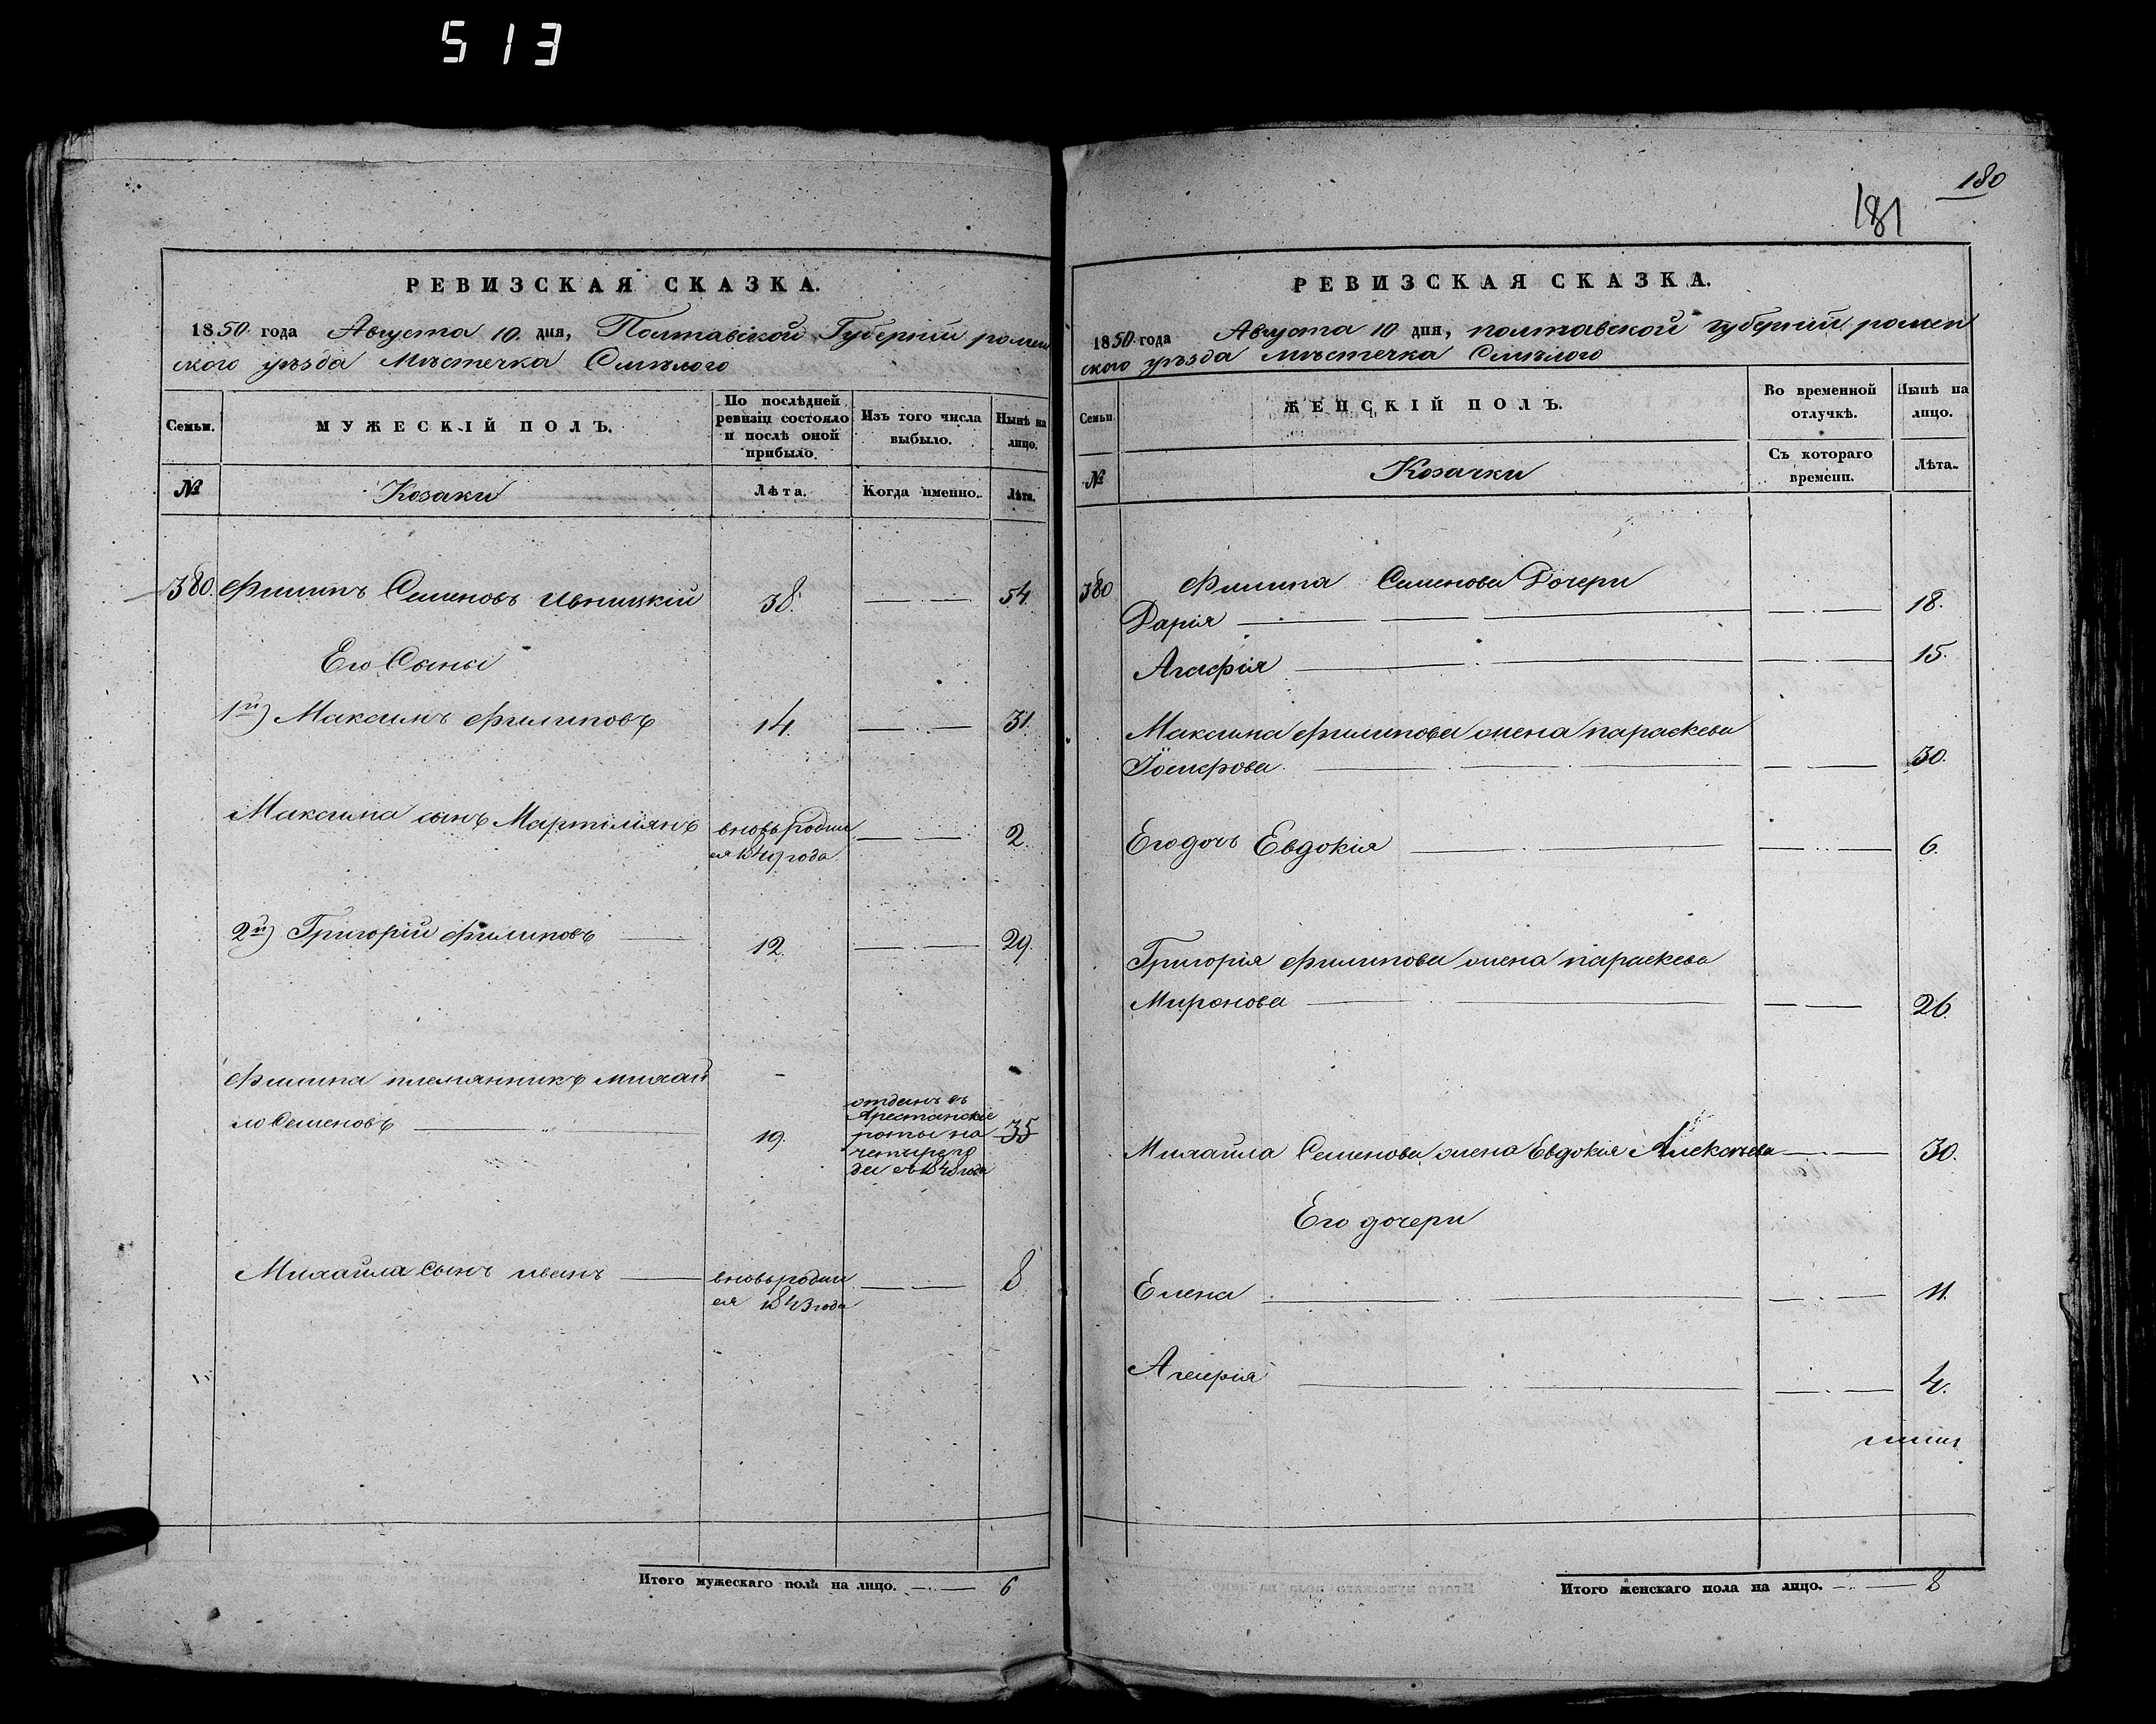 513
РЕВИЗСКАЯ СКАЗКА.
1850. года Августа 10. дня, Полтавской Губерніи ромен
ского уѣзда Мѣстечка Смѣлого
Семьи.
МУЖЕСКІЙ ПОЛЪ.
По послѣдней
ревизіи состояло
и послѣ оной
прибыло.
Изъ того числа
выбыло.
Нынѣ на
лицо.
№
Козаки
Лѣта.
Когда именно.
Лѣта.
380. Филипъ Семеновъ 38. 54.
Его Сыны
1й) Максимъ Филиповъ 14. 31.
Максима сынъ Мартиніянъ вновь родил 2.
ся 1849 года
2й) Григорій Филиповъ 12. 29.
Филипа племянникъ михай
ло Семеновъ 19. 35
отданъ въ
Арестанскіе
роты на
четыре го
да съ 1848 года
Михайла Сынъ иванъ вновь родил 8
ся 1843 года
Итого мужескаго пола на лицо. 6
180
181
РЕВИЗСКАЯ СКАЗКА.
1850. года Августа 10 дня, полтавской губерніи ромен
ского уѣзда мѣстечка Смѣлого
Семьи
ЖЕНСКІЙ ПОЛЪ.
Во временной
отлучкѣ.
Нынѣ на
лицо.
№
Козачки
Съ котораго
времени.
Лѣта.
380 Филипа Семенова Дочери
Дарія 18.
Агафія 15.
Максима Филипова жена параскева
30.
Его дочь Евдокія 6.
Григорія Филипова жена параскева
Миронова 26.
Михайла Семенова жена Евдокія Алексѣева 30.
Его дочери
Елена 11.
Агафія 4.
Итого женскаго пола на лицо. 8